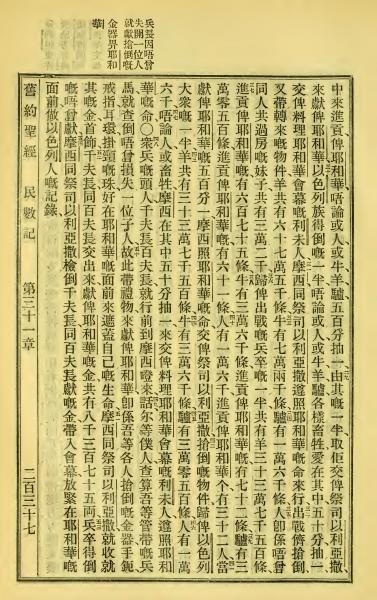 兵長因唔曾
失闕一位人
就獻搶倒嘅
金器畀耶和
華
中來進貢俾耶和華唔論或人或牛羊驢五百分抽一由其嘅一半取佢交俾祭司以利亞撒
來獻俾耶和華以色列族得倒嘅一半唔論或人或牛羊驢各樣畜牲愛在其中五十分抽一
交俾料理耶和華會幕嘅利未人摩西同祭司以利亞撒遵照耶和華嘅命來行出戰儕搶倒
又帶轉來嘅物件羊共有六十七萬五千條牛有七萬兩千條驢有一萬六千條人卽係唔曾
同人共過房嘅妹子共有三萬二千歸俾出戰嘅兵卒嘅一半共有羊三十三萬七千五百條
進貢俾耶和華嘅有六百七十五條牛有三萬六千條進貢俾耶和華嘅有七十二條驢有三
萬零五百條進貢俾耶和華嘅有六十一條人有一萬六千進貢俾耶和華个有三十二人當
獻俾耶和華嘅五百分一摩西照耶和華嘅命交俾祭司以利亞撒搶倒嘅物件歸俾以色列
大衆嘅一半羊共有三十三萬七千五百條牛有三萬六千條驢有三萬零五百條人有一萬
六千唔論人或畜牲摩西在其中五十分抽一來交俾料理耶和華會幕嘅利未人遵照耶和
華嘅命〇衆兵嘅頭人千夫長百夫長就行前到摩西嗰來話尔等僕人查算吾等管帶嘅兵
馬就查倒唔曾損失一位子人故此帶禮物來獻俾耶和華卽係吾等各人搶倒嘅金器手鈪
戒指耳環掛頸嘅珠好在耶和華嘅面前來遮蓋自己嘅生命摩西同祭司以利亞撒就收
其嘅金首飾千夫長同百夫長交出來獻俾耶和華嘅金共有八千三百七十五兩兵卒得倒
嘅唔曾獻摩西同祭司以利亞撒檢倒千夫長同百夫長獻嘅金帶入會幕放緊在耶和華嘅
面前做以色列人嘅記錄
舊約聖經　民數記　第三十一章　二百三十七